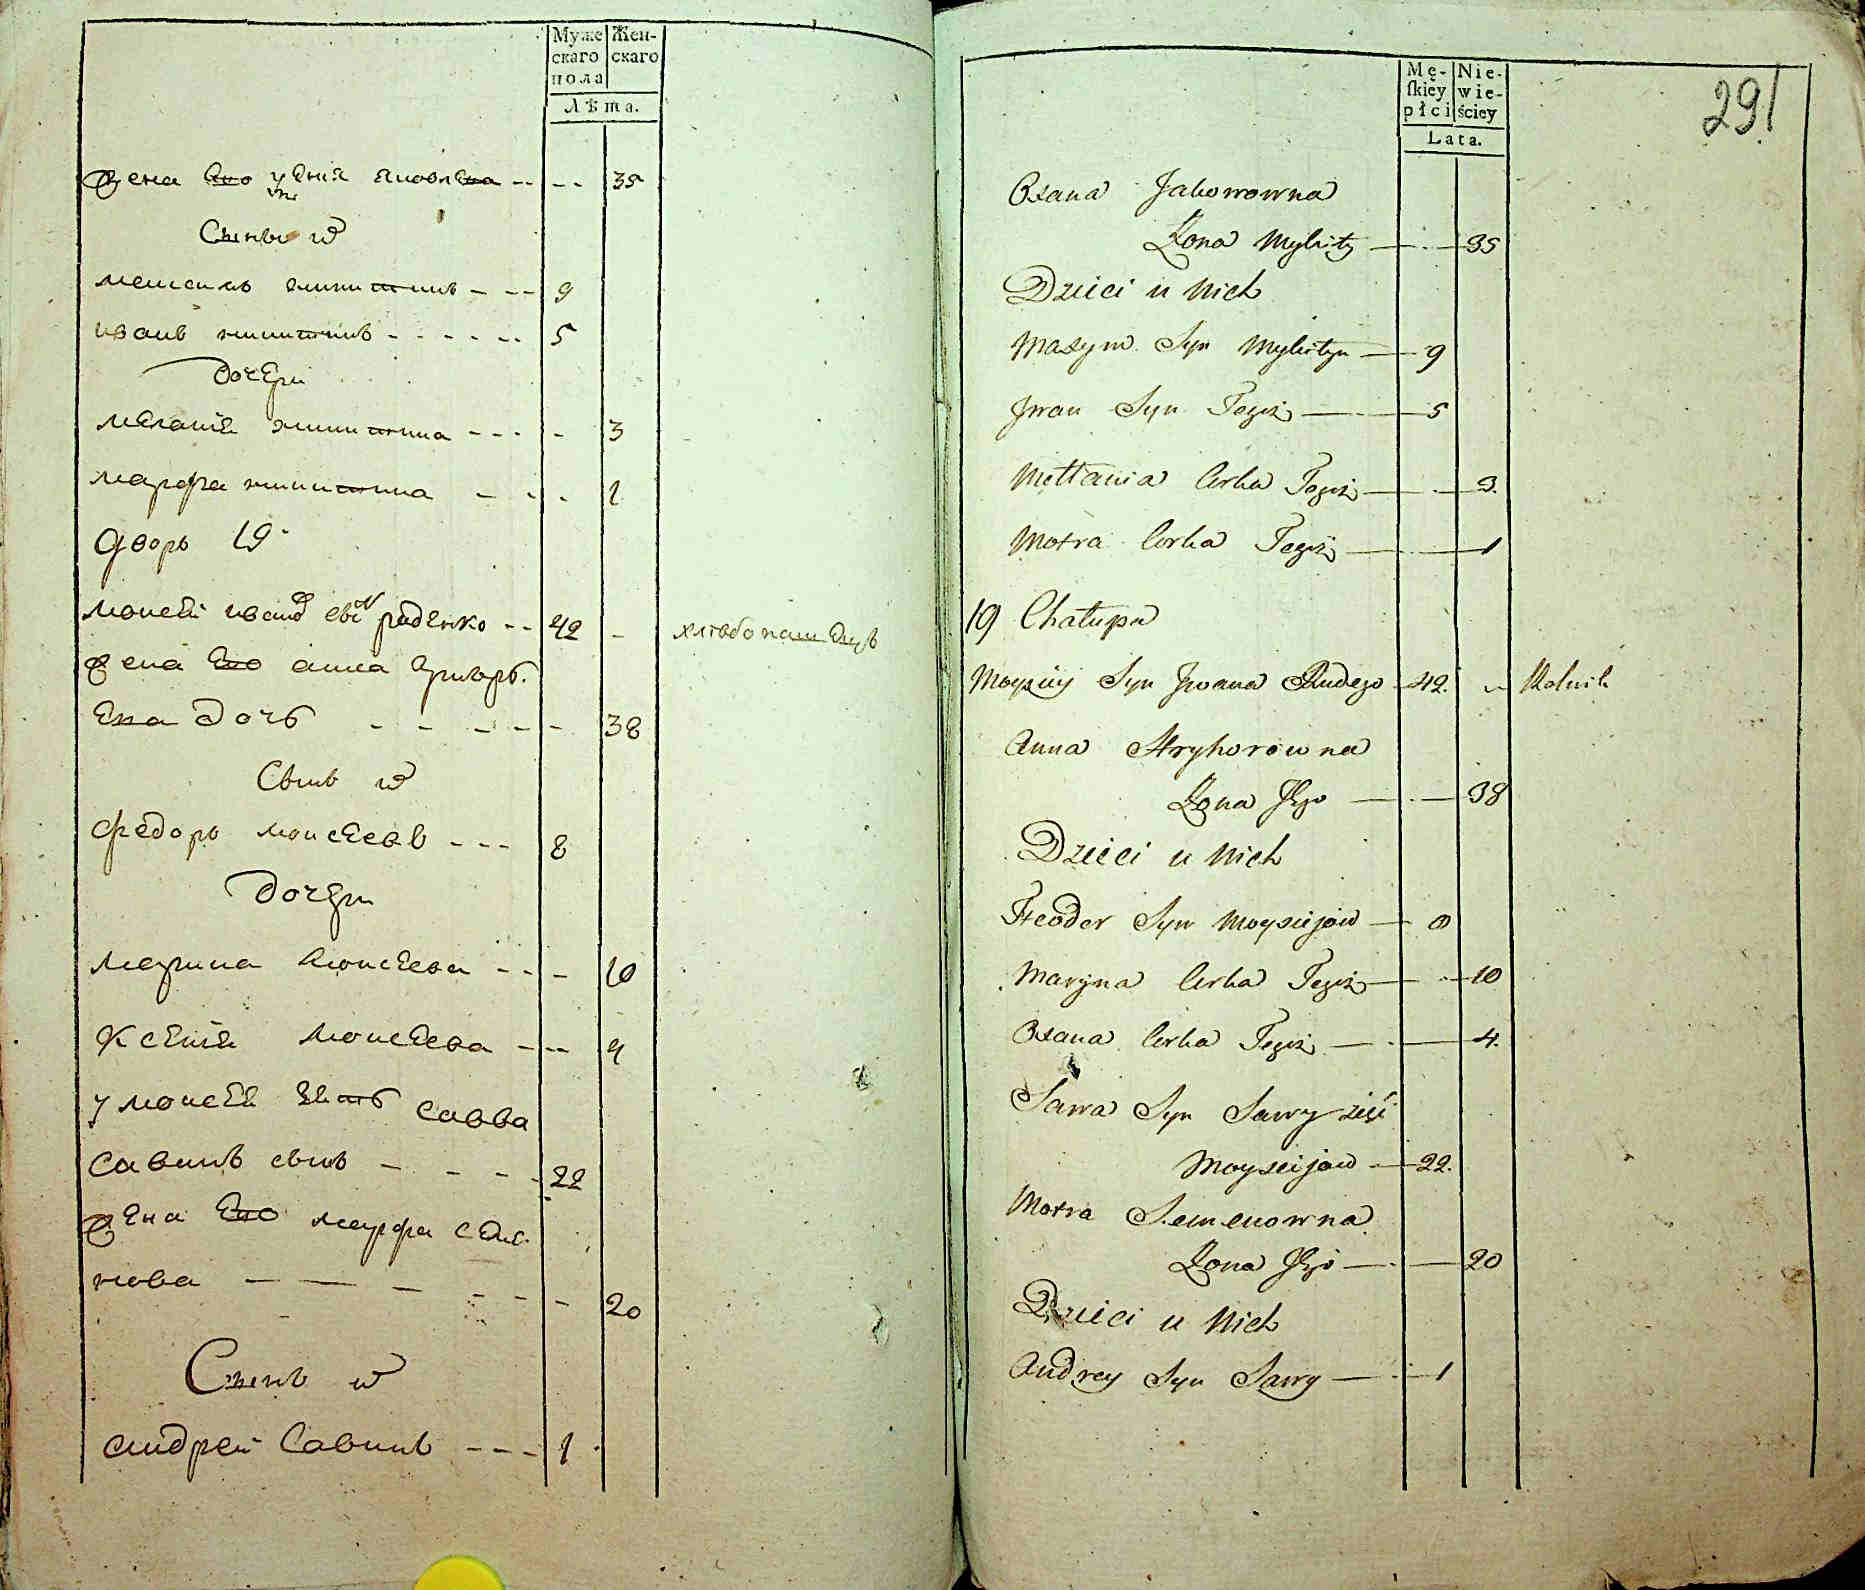 Муже
скаго
пола
Жен-
скаго
Лѣта.
жена его Ѯения яковлева -- -- 35
Сыны
максимъ никитинъ - -- 9
иванъ никитинъ - - - - -- 5
Дочери
мелания никитина - - - - 3
марфа никитина - - - 1
Дворъ 19
моисей иванов сын руденко -- 42 - хлебопашецъ
жена его анна григорь
ева дочь - - - - - 38
Сынъ
федоръ моисеевъ - - - 8
Дочери
марина моисеева - - - 10
ксения моисеева - -- 4
у моисея зять савва
савинъ сынъ - - - - 22
жена его марфа семе
нова - - - - - - 20
Сынъ
андрей савинъ - - - 1
Mę-
ſkiey
płci
Nie-
wie-
ściey
Lata.
291
Oxana Jakowowna
Żona Mykity — — 35
Dzieci u Nich
Maxym Syn Mykityn — 9
Jwan Syn Tegoż — 5
Mełania Corka Tegoż — — 3.
Motra Corka Tegoż — — 1
19 Chałupa
Moysiey Syn Jwana Rudego - 42. " Rolnik
Anna Hryhorowna
Żona Jego — — 38
Dzieci u Nich
Fteodor Syn Moysiejow — 8
Maryna Corka Tegoż — — 10
Oxana Corka Tegoż — — 4.
Sawa Syn Sawy zięć
Moysiejow — 22.
Motra Semenowna
Żona Jego — — 20
Dzieci u Nich
Andrey Syn Sawy — 1